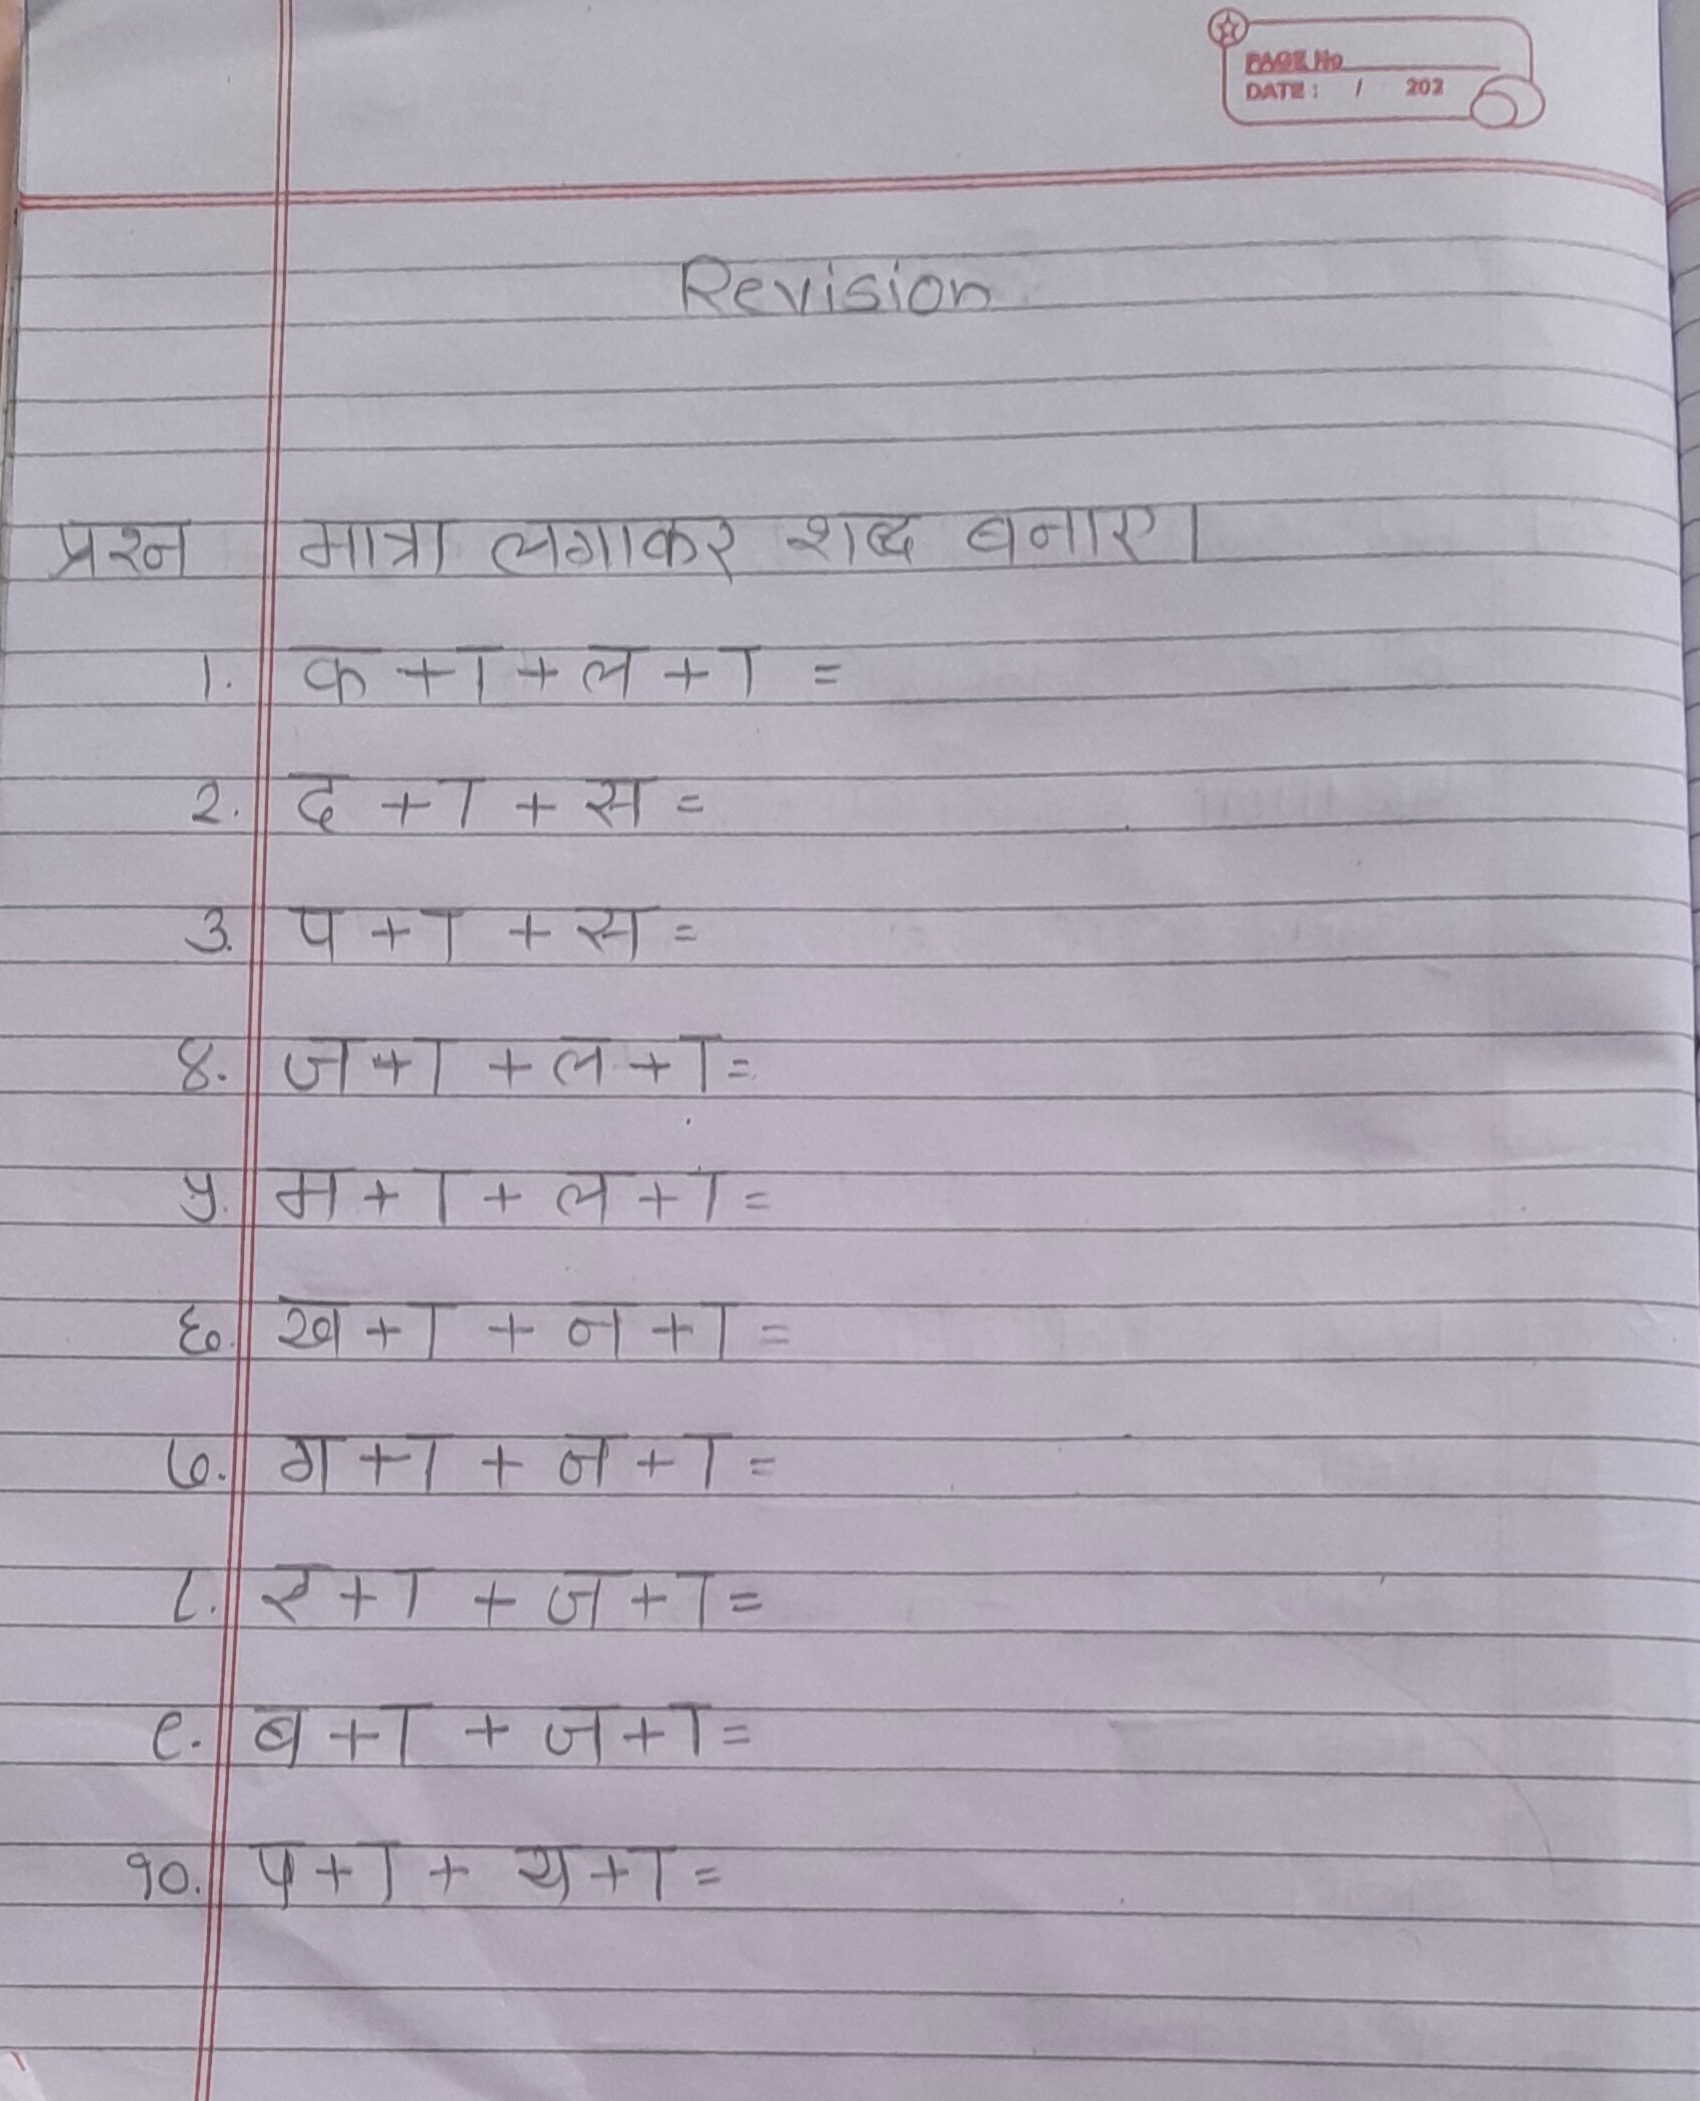 PAGE No
DATE: / 202
Revision
प्रश्न मात्रा लगाकर शब्द बनाए।
1. क + ा + ल + ा =
2. द + ा + स =
3. प + ा + स =
४. ज + ा + ल + ा =
५. म + ा + ल + ा =
६. ख + ा + न + ा =
७. ग + ा + न + ा =
८. र + ा + ज + ा =
९. ब + ा + ज + ा =
१०. प + ा + य + ा =